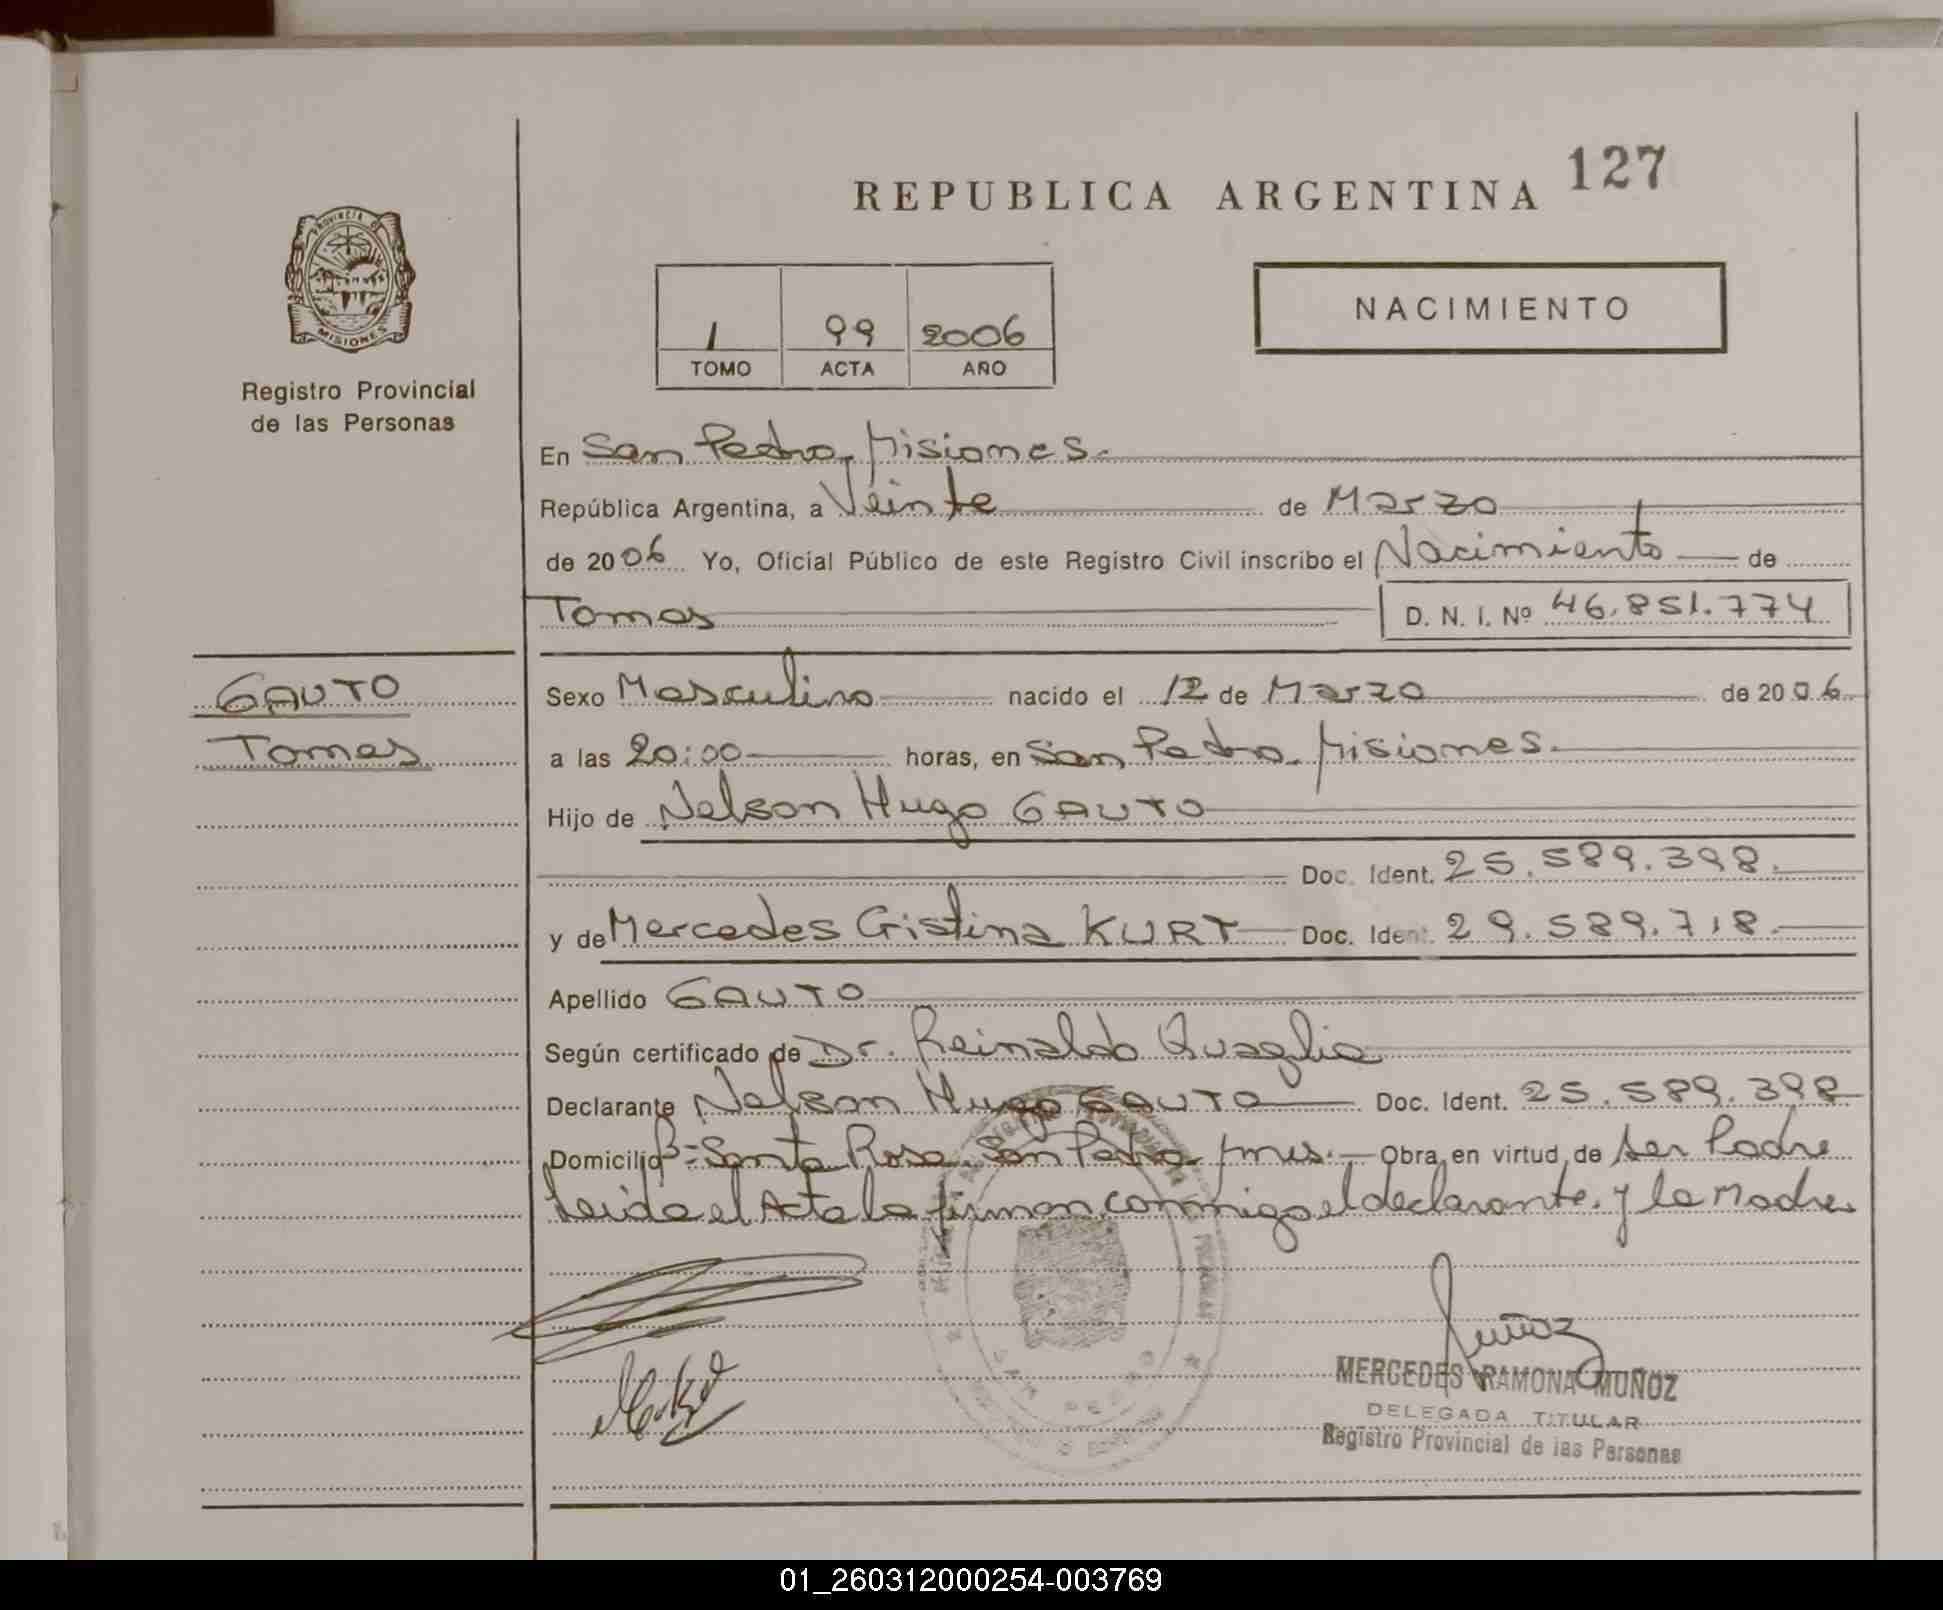 127
REPUBLICA ARGENTINA
PROVINCIA D
MISIONES
Registro Provincial
de las Personas
1 99 2006
TOMO ACTA AÑO
NACIMIENTO
En San Pedro, Misiones.
República Argentina, a Veinte de Marzo
de 2006 Yo, Oficial Público de este Registro Civil inscribo el Nacimiento de
Tomas D. N. I. Nº 46.851.774
GAUTO
Tomas
Sexo Masculino nacido el 12 de Marzo de 2006
a las 20:00 horas, en San Pedro. Misiones.
Hijo de Nelson Hugo GAUTO
Doc. Ident. 25.589.398.
y de Mercedes Cristina KURT Doc. Ident. 29.589.718.
Apellido GAUTO
Según certificado de Dr. Reinaldo Quaglia
Declarante Nelson Hugo GAUTO Doc. Ident. 25.589.398
Domicilio Bº Santa Rosa. San Pedro Mnes. Obra en virtud de ser Padre
Leida el Acta la firman conmigo el declarante. y la Madre
SAN PEDRO
Muñoz
MERCEDES RAMONA MUÑOZ
DELEGADA TITULAR
Registro Provincial de las Personas
01_260312000254-003769